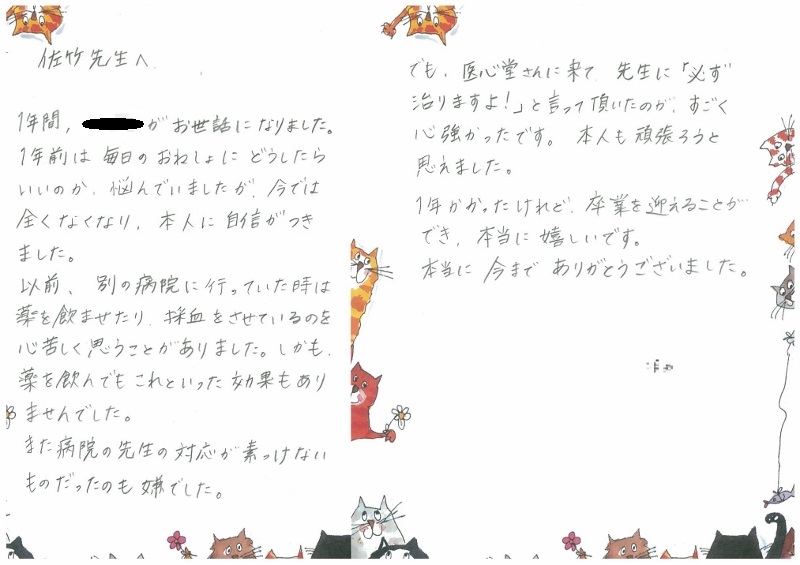 佐竹先生へ
1年間, がお世話になりました。
1年前は毎日のおねしょにどうしたら
いいのか、悩んでいましたが、今では
全くなくなり、本人に自信がつき
ました。
以前、別の病院に行っていた時は
薬を飲ませたり、採血をさせているのを
心苦しく思うことがありました。しかも、
薬を飲んでもこれといった効果もあり
ませんでした。
また病院の先生の対応が素っけない
ものだったのも嫌でした。
でも、医心堂さんに来て、先生に「必ず
治りますよ!」と言って頂いたのが、すごく
心強かったです。本人も頑張ろうと
思えました。
1年かかったけれど、卒業を迎えることが
でき、本当に嬉しいです。
本当に今までありがとうございました。